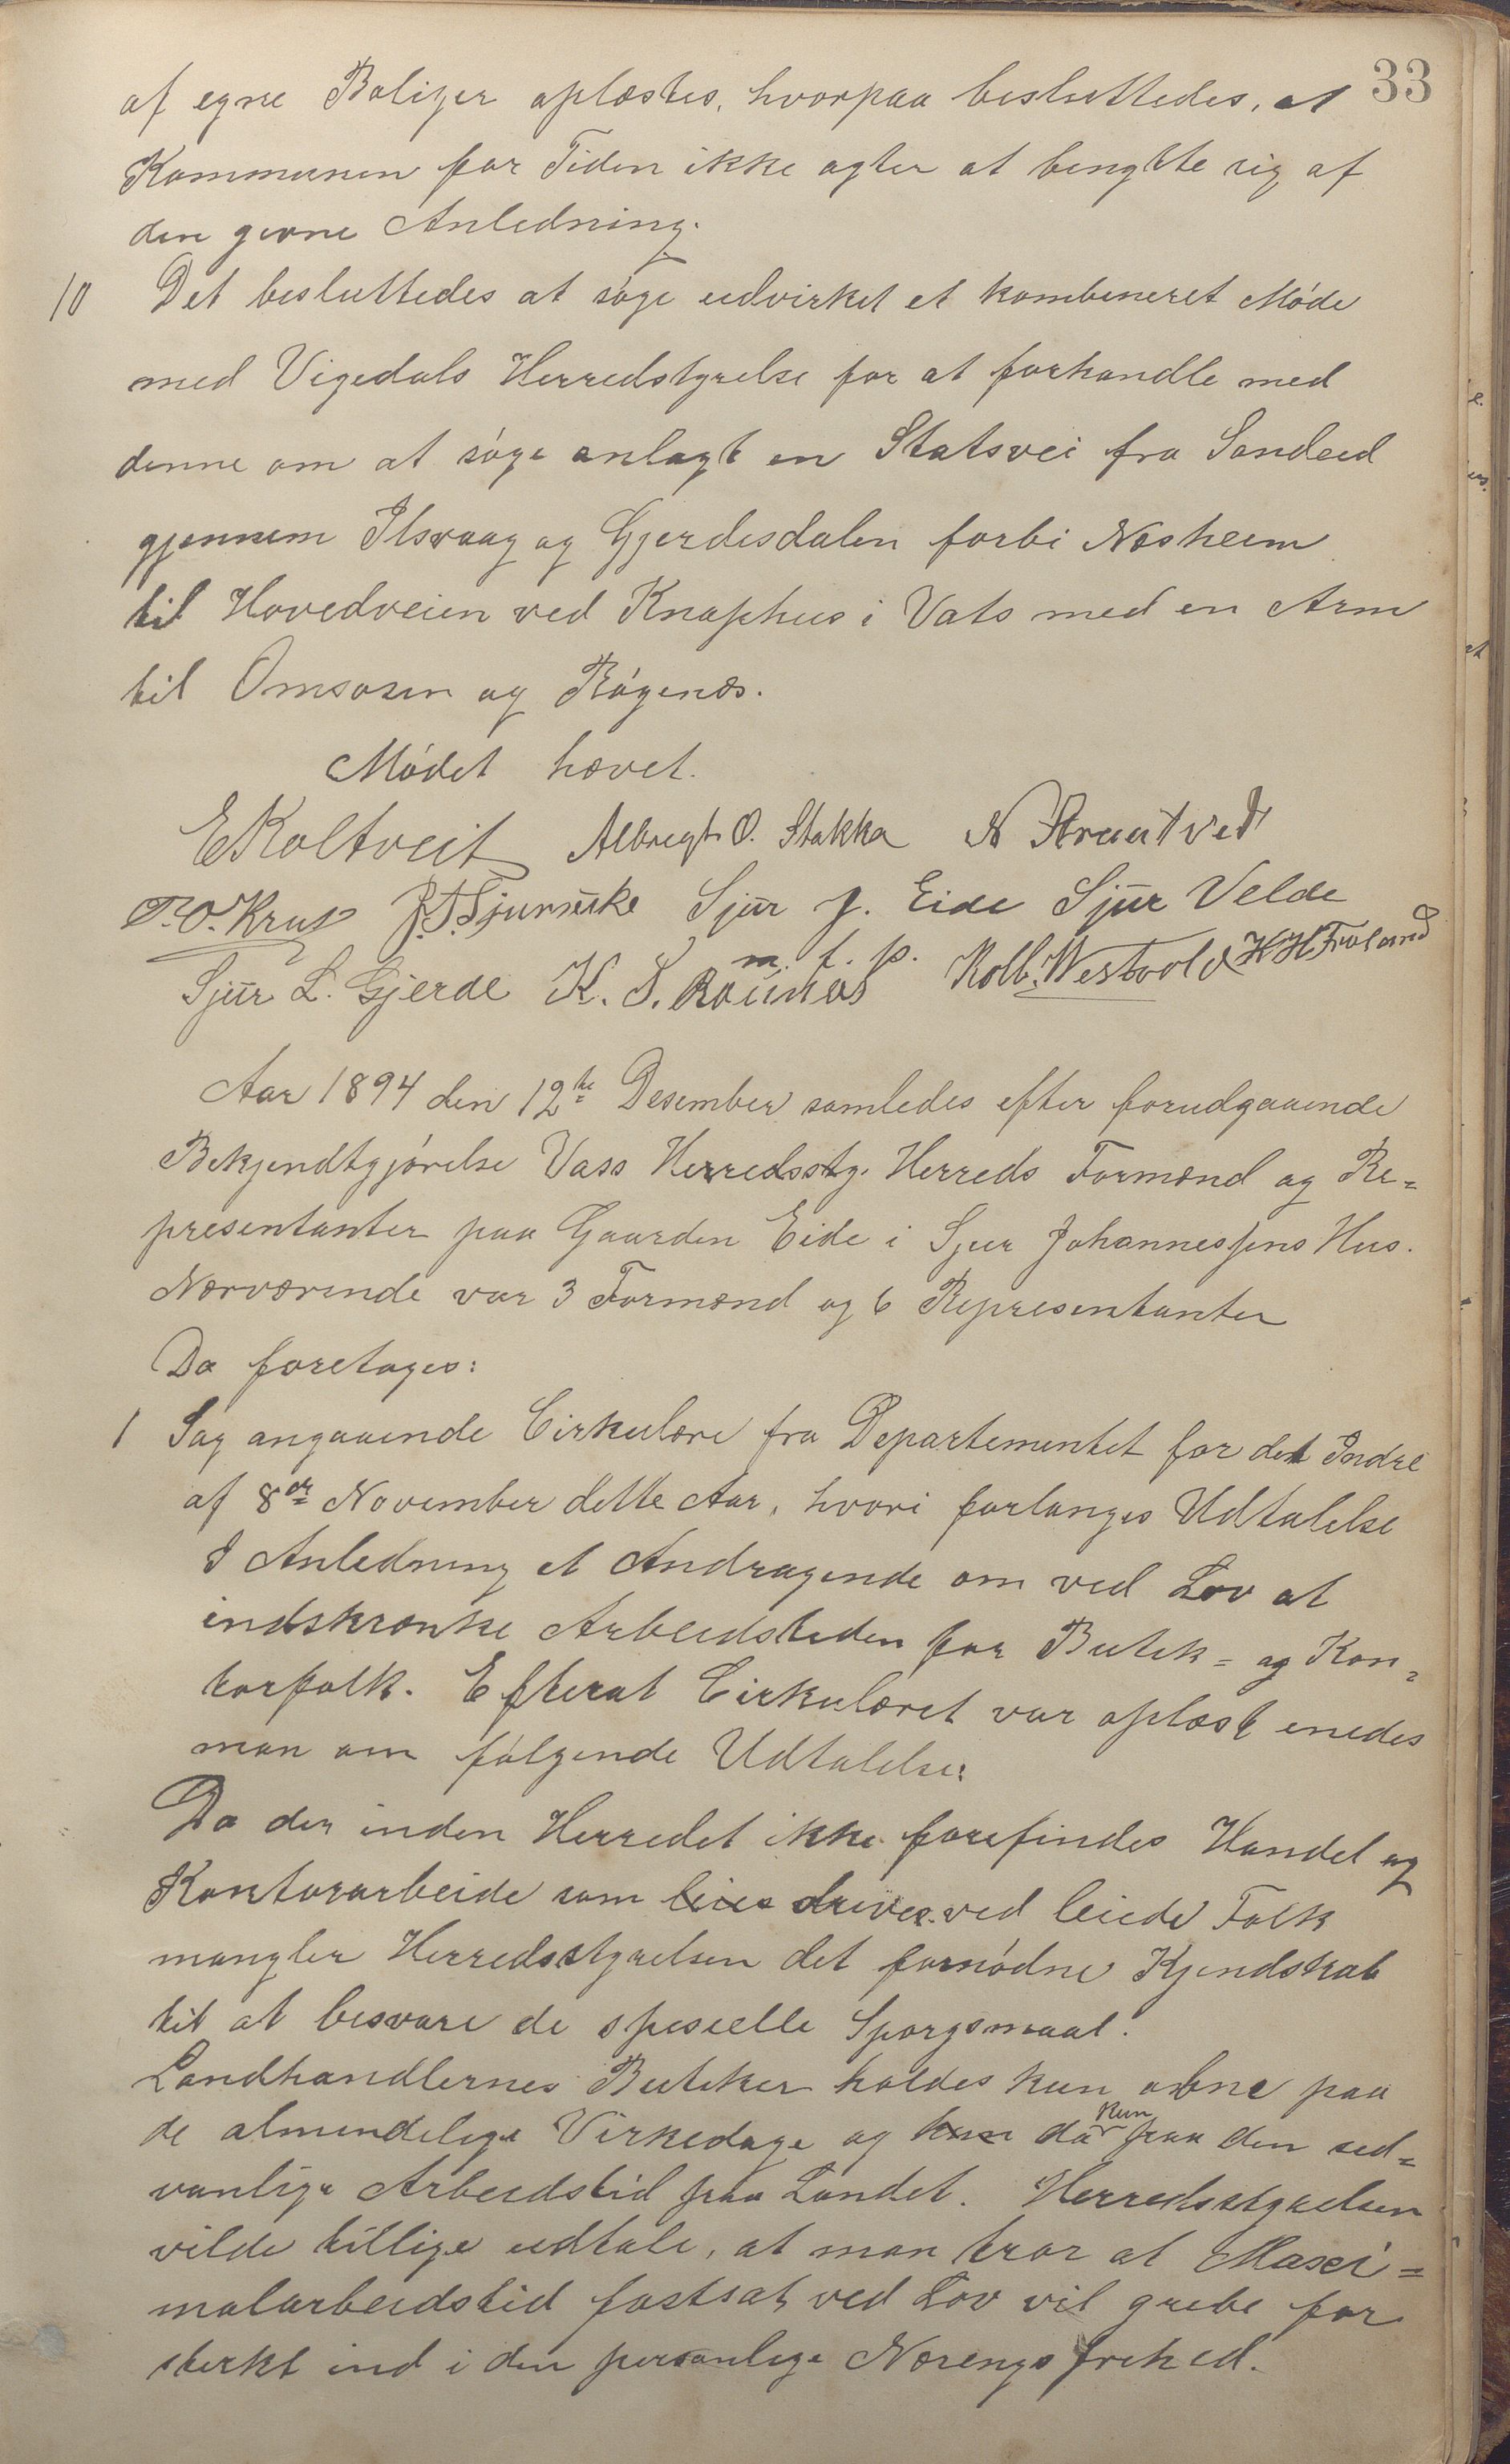 33
af egne Boliger oplæstes, hvorpaa besluttedes, at
Kommunen for Tiden ikke agter at benytte sig af
den givne Anledning.
10 Det besluttedes at søge udvirket et kombineret Møde
med Vigedals Herredstyrelse for at forhandle med
denne om at søge anlagt en Statsvei fra Sandeid
gjennem Ilsvaag og Gjerdesdalen forbi Nesheim
til Hovedveien ved Knaphus i Vats med en Arm
til Omsosen og Røgenæs.
Mødet hævet.
E Koltveit Albregt O. Stakka N Straatveit
T.O. Krus Sjur J. Eide Sjur Velde
m. f. p.
Sjur L. Gjerde K. S. Rounæs Kolb. Westvold H H Frøland
Aar 1894 den 12te Desember samledes efter forudgaaende
Bekjendtgjørelse Vass Herredsstg. Herreds Formænd og Re=
presentanter paa Gaarden Eide i Sjur Johannessens Hus.
Nærværende var 3 Formænd og 6 Representanter
Da foretages:
1 Sag angaaende Cirkulære fra Departementet for det Indre
af 8de November dette Aar, hvori forlanges Udtalelse
I Anledning et Andragende om ved Lov at
indskrænke Arbeidstiden for Butik= og Kon=
torfolk. Efterat Cirkulæret var oplæst enedes
man om følgende Udtalelse:
Da der inden Herredet ikke forefindes Handel og
Kontorarbeide som leies drives ved leiede Folk
mangler Herredsstyrelsen det fornødne Kjendskab
til at besvare de spesielle Spørgsmaal.
Landhandlernes Butiker holdes kun abne paa
de almindelige Virkedage og kun da kun paa den sed=
vanlige Arbeidstid paa Landet. Herredsstyrelsen
vilde tillige udtale, at man tror at Maxi=
malarbeidstid fastsat ved Lov vil gribe for
sterkt ind i den personlige Nærings frihed.